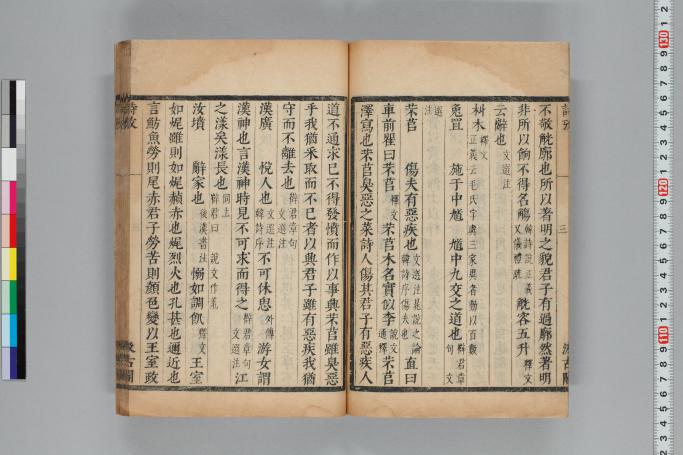 不敬觥廓也所以著明之貌君子有過廓然者明
非所以餉不得名觴韓詩說正義又儀禮疏觥容五升釋文
云觶也文選注
朻木釋文正義云毛氏字與三家異者動以百數
兔罝 施于中馗 馗中九交之道也韓君章句文
選注
芣苢 傷夫有惡疾也文選注是說之論韓詩序傷夫也直曰
車前瞿曰芣苢釋文芣苢木名實似李說文通釋芣苢
澤寫也芣苢臭惡之菜詩人傷其君子有惡疾人
道不通求已不得發憤而作以事興芣苢雖臭惡
乎我猶釆取而不已者以興君子雖有惡疾我猶
守而不離去也韓君章句文選注
漢廣 悅人也文選注韓詩序不可休息外傳游女謂
漢神也言漢神時見不可求而得之韓君章句文選注江
之漾矣漾長也同上韓君曰 說文作羕
汝墳 辭家也後漢書注惄如調飢釋文王室
如娓雖則如娓赬赤也娓烈火也孔甚也邇近也
言魴魚勞則尾赤君子勞苦則顏色變以王室政